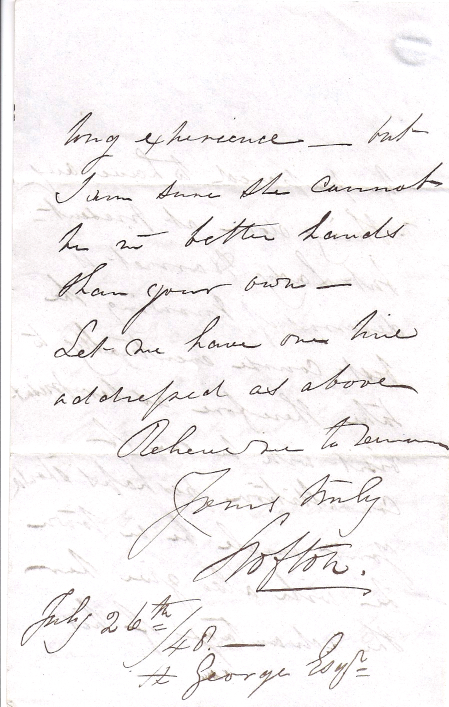 long experience — but
I am sure she cannot
be in better hands
than your own —
Let me have one line
addressed as above
Believe me to remain
Yours truly
Crofton.
July 26th/48. —
H George Esqr